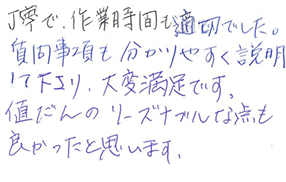 丁寧で、作業時間も適切でした。
質問事項も分かりやすく説明
して下さり、大変満足です。
値だんのリーズナブルな点も
良かったと思います。